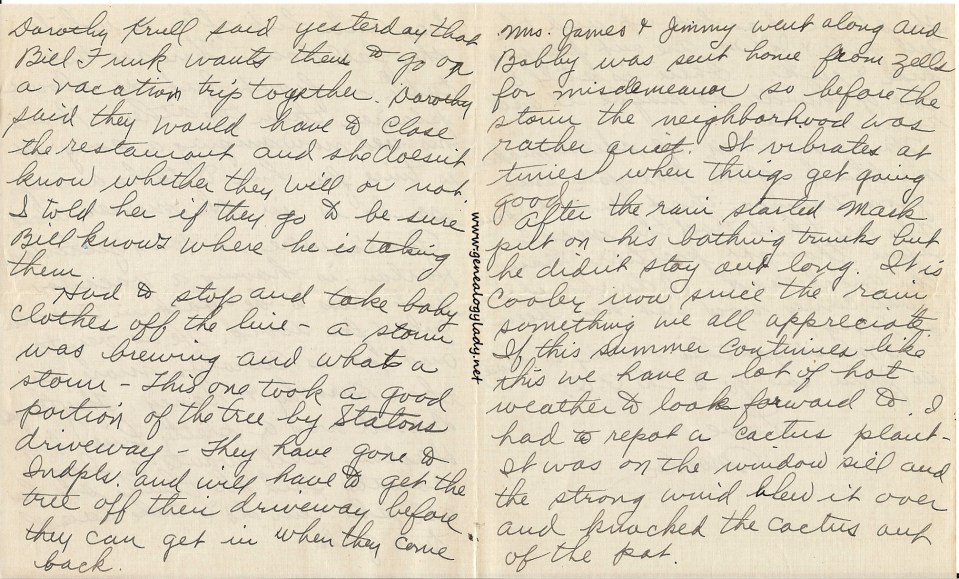 Dorothy Krull said yesterday that
Bill Funk wants them to go on
a vacation trip together. Dorothy
said they would have to close
the restaurant and she doesn't
know whether they will or not.
I told her if they go to be sure
Bill knows where he is taking
them.
Had to stop and take baby
clothes off the line - a storm
was brewing and what a
storm - This one took a good
portion of the tree by Statons
driveway - They have gone to
Indpls. and will have to get the
tree off their driveway before
they can get in when they come
back.
www.genealogylady.net
Mrs. James & Jimmy went along and
Bobby was sent home from Zells
for misdemeanor so before the
storm the neighborhood was
rather quiet. It vibrates at
times when things get going
good.
After the rain started Mask
put on his bathing trunks but
he didn't stay out long. It is
cooler now since the rain
something we all appreciate.
If this summer continues like
this we have a lot of hot
weather to look forward to. I
had to repot a cactus plant -
It was on the window sill and
the strong wind blew it over
and knocked the cactus out
of the pot.